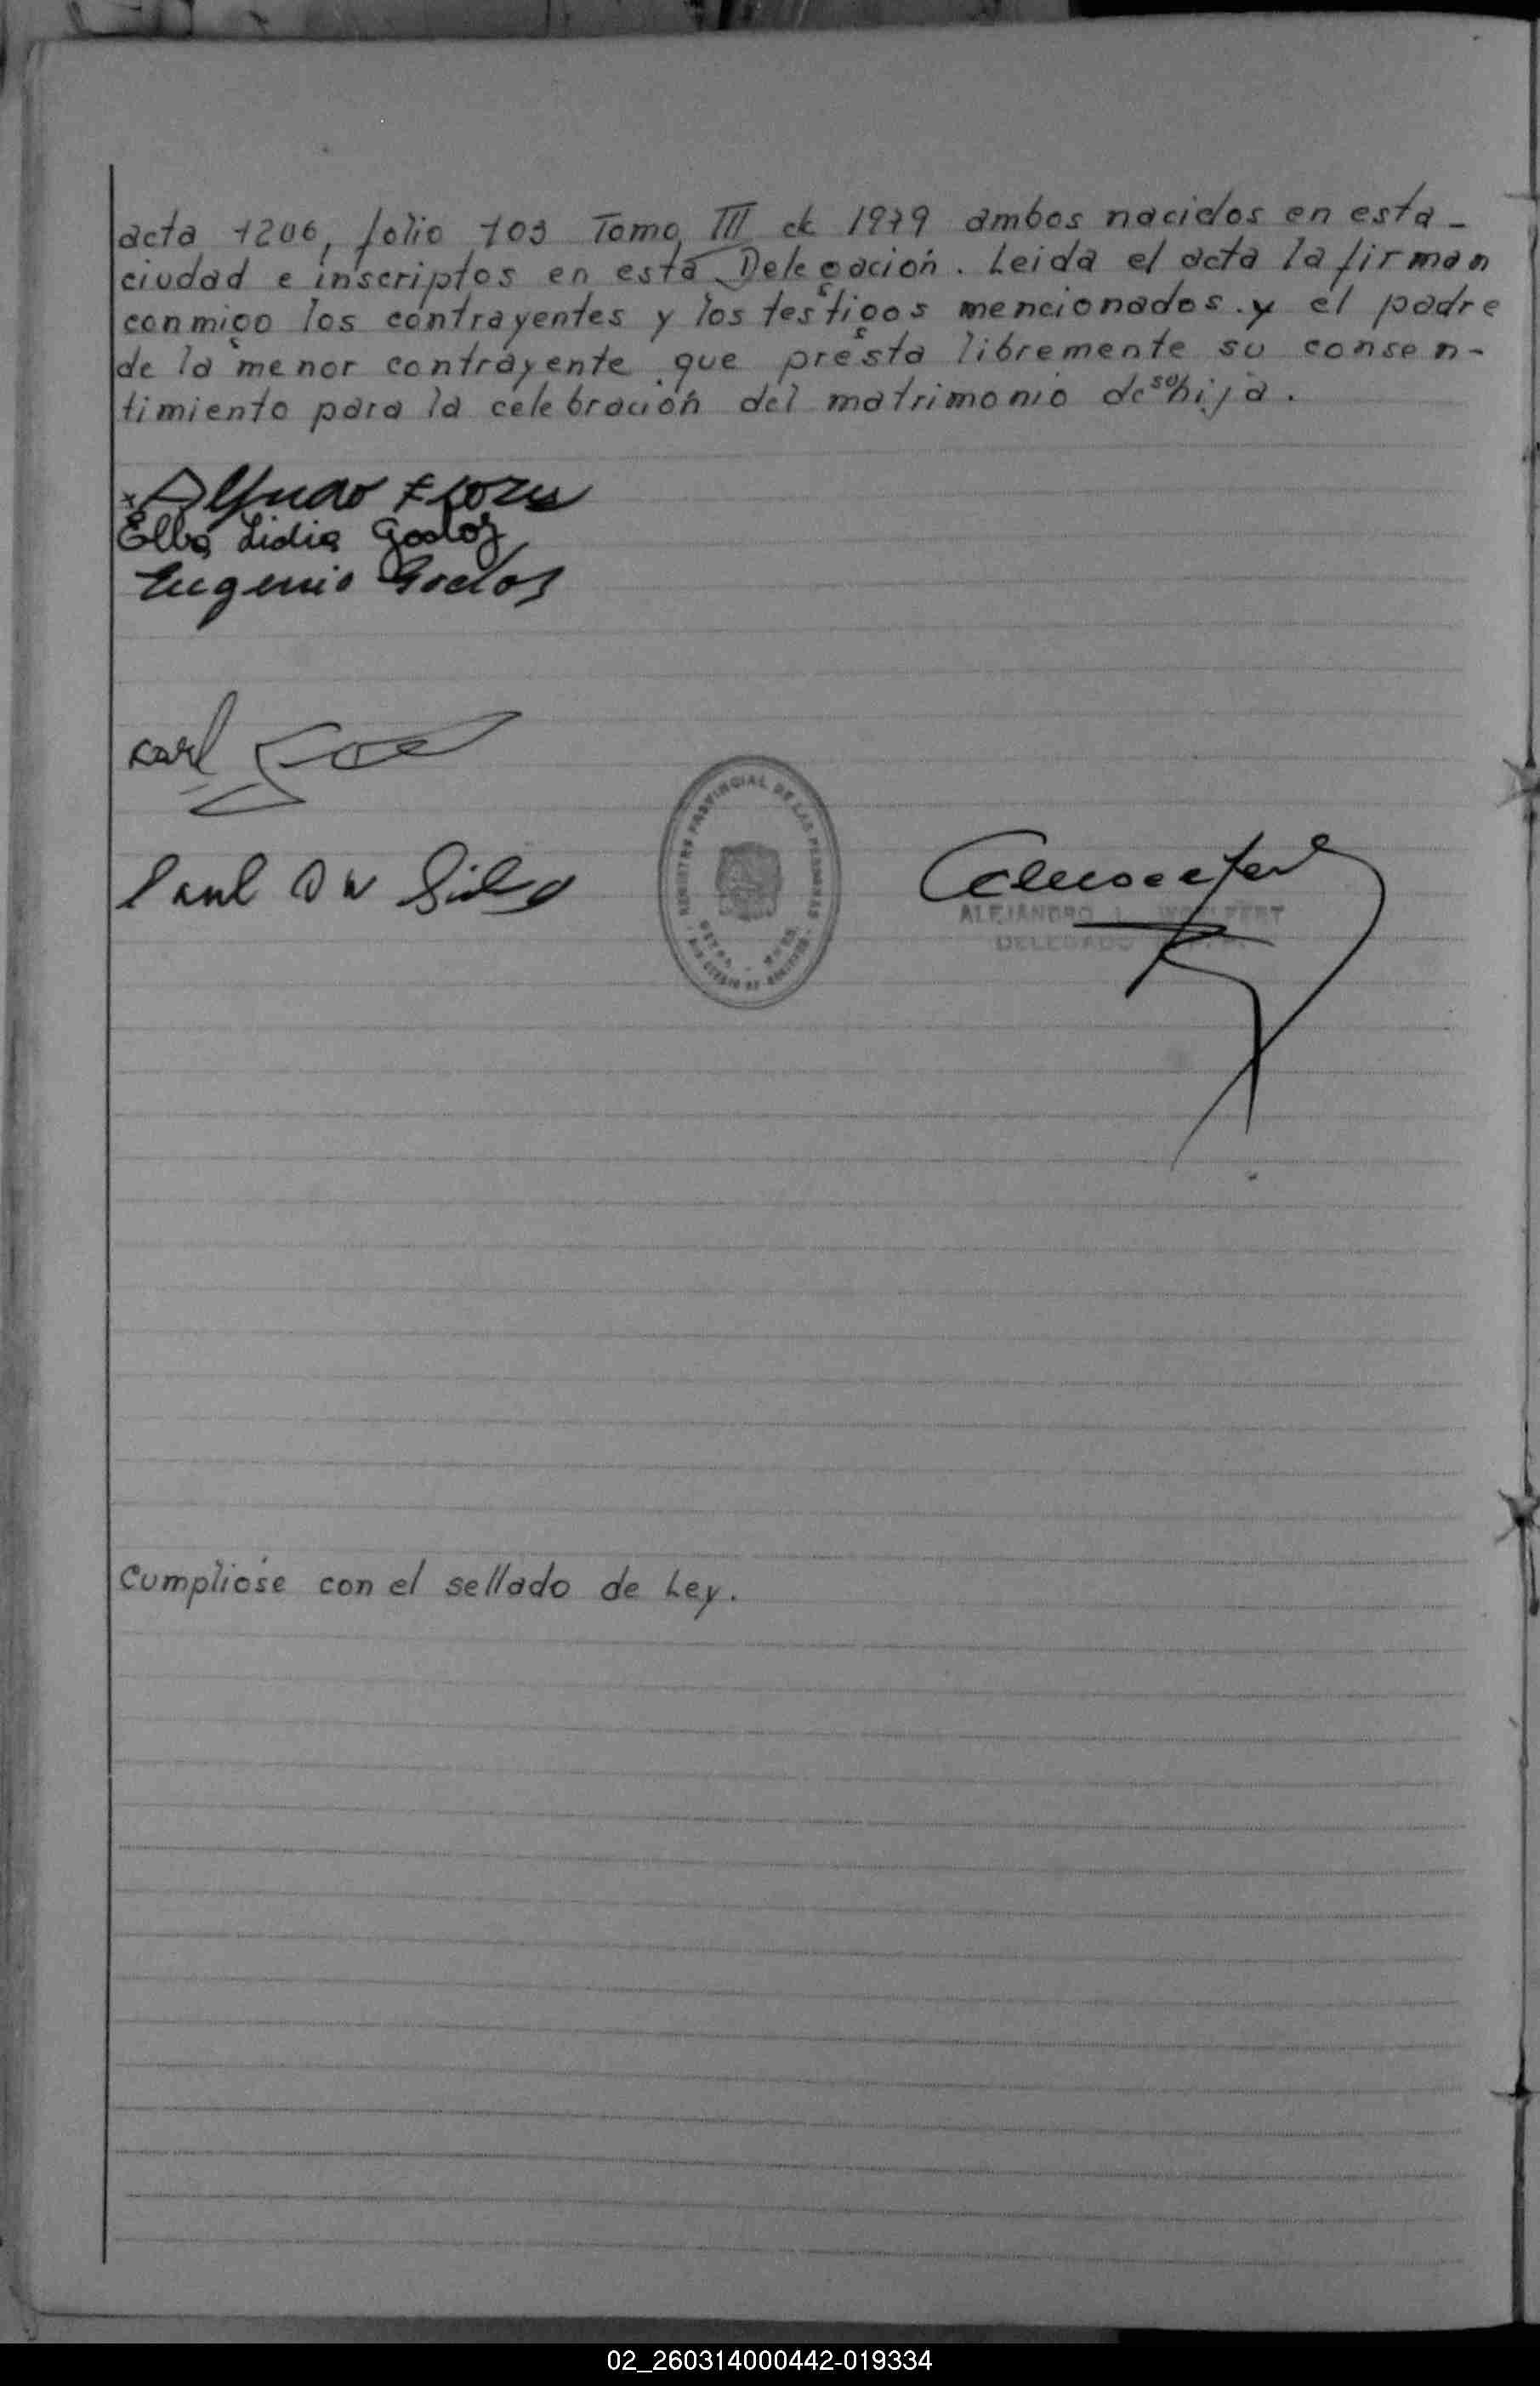 acta 1206, folio 103 Tomo III de 1979 ambos nacidos en esta -
ciudad e inscriptos en esta Delegación. Leida el acta la firman
conmigo los contrayentes y los testigos mencionados. y el padre
de la menor contrayente que presta libremente su consen-
timiento para la celebración del matrimonio de su hija.
x Alfredo Flores
Elba Lidia Godoy
Eugenio Godoy
Karl
REGISTRO PROVINCIAL DE LAS PERSONAS
ALEJANDRO
DELEGADO
Cumplióse con el sellado de Ley.
02_260314000442-019334